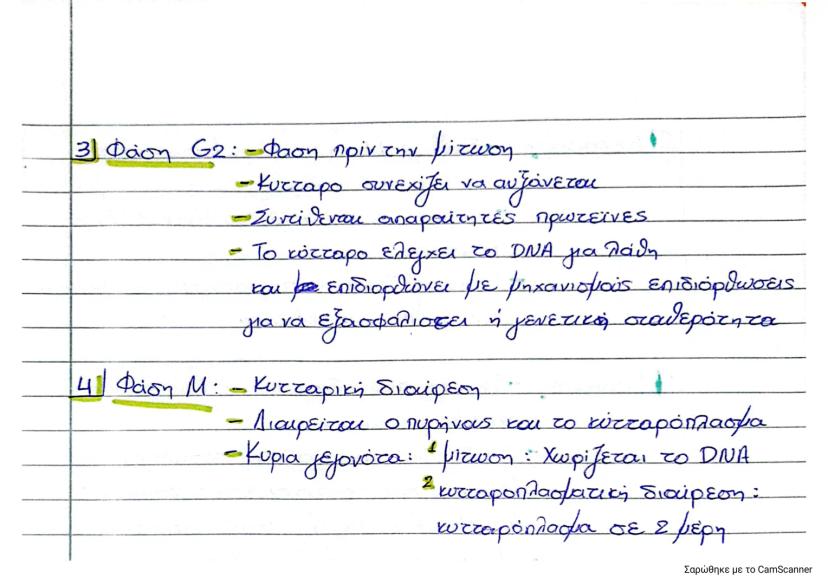 3) Φάση G2: - Φαση πρίν την μίτωση
- Κυτταρο συνεχίζει να αυξάνεται
- Συντίθενται απαραίτητές πρωτείνες
- Το κύτταρο ελεγχει το DNA για λάθη
και επιδιορθώνει με μηχανισμούς επιδιόρθωσεις
για να εξασφάλισει ή γενετική σταθερότητα
4) Φάση Μ: - Κυτταρική διαίρεση
- Διαιρείται ο πυρήνας και το κύτταρόπλασμα
- Κυρια γεγονότα: 1 μίτωση: Χωρίζεται το DNA
2 κυτταροπλασματική διαίρεση:
κυτταρόπλασμα σε 2 μέρη
Σαρώθηκε με το CamScanner